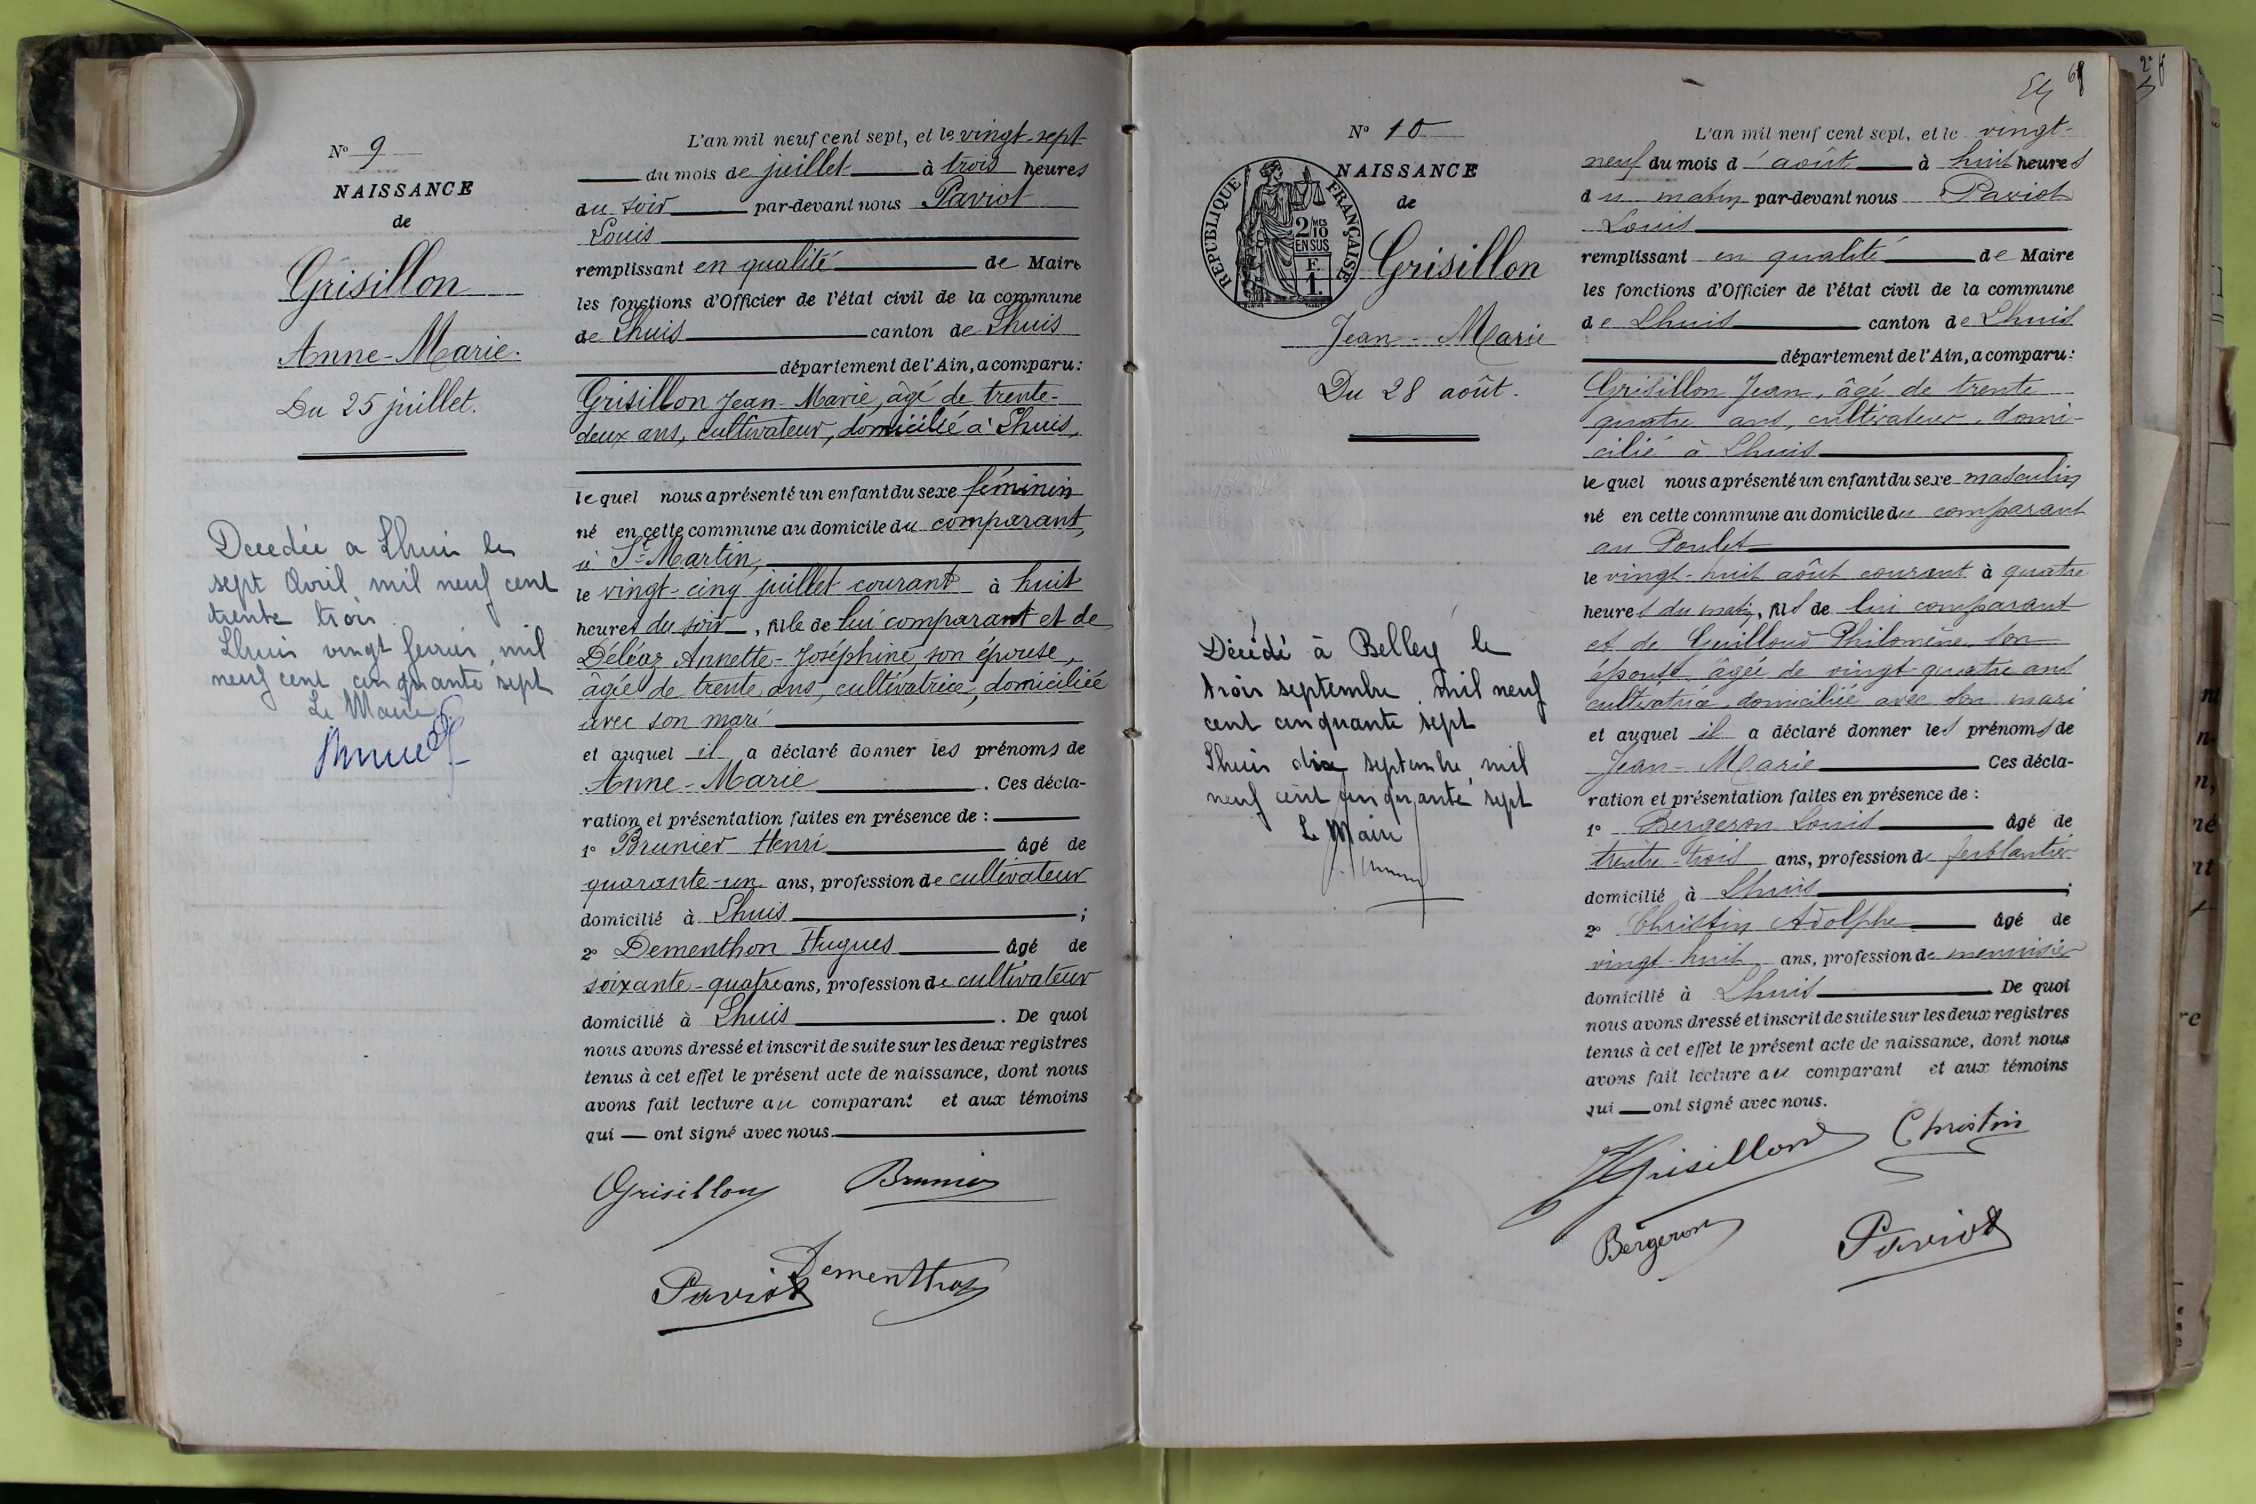 N° 9
NAISSANCE
de
Grisillon
Anne-Marie.
Du 25 juillet.
Decedée a Lhuis le
sept Avril mil neuf cent
trente trois
Lhuis vingt février mil
neuf cent cinquante sept
Le Maire
L'an mil neuf cent sept, et le vingt-sept
du mois de juillet à trois heures
du soir par-devant nous Paviot
Louis
remplissant en qualité de Maire
les fonctions d'Officier de l'état civil de la commune
de Lhuis canton de Lhuis
département de l'Ain, a comparu :
Grisillon Jean-Marie, âgé de trente-
deux ans, cultivateur, domicilié à Lhuis,
le quel nous a présenté un enfant du sexe féminin
né en cette commune au domicile du comparant,
à St-Martin,
le vingt-cinq juillet courant à huit
heures du soir, fille de lui comparant et de
Déléaz Annette-Joséphine, son épouse,
âgée de trente ans, cultivatrice, domiciliée
avec son mari
et auquel il a déclaré donner les prénoms de
Anne-Marie. Ces décla-
ration et présentation faites en présence de :
1° Brunier Henri âgé de
quarante-un ans, profession de cultivateur
domicilié à Lhuis ;
2° Dementhon Hugues âgé de
soixante-quatre ans, profession de cultivateur
domicilié à Lhuis. De quoi
nous avons dressé et inscrit de suite sur les deux registres
tenus à cet effet le présent acte de naissance, dont nous
avons fait lecture au comparant et aux témoins
qui — ont signé avec nous.
Grisillon Brunier
Paviot Dementhon
68
N° 10
NAISSANCE
de
RÉPUBLIQUE FRANÇAISE
2/10 MES
EN SUS
F.
1.
Grisillon
Jean-Marie
Du 28 août.
Décédé à Belley le
trois septembre mil neuf
cent cinquante sept
Lhuis dix septembre mil
neuf cent cinquante sept
Le Maire
L'an mil neuf cent sept, et le vingt-
neuf du mois d'août à huit heures
du matin par-devant nous Paviot
Louis
remplissant en qualité de Maire
les fonctions d'Officier de l'état civil de la commune
de Lhuis canton de Lhuis
département de l'Ain, a comparu :
Grisillon Jean, âgé de trente
quatre ans, cultivateur, domi-
cilié à Lhuis
le quel nous a présenté un enfant du sexe masculin
né en cette commune au domicile du comparant
au Poulet
le vingt-huit août courant à quatre
heures du matin, fils de lui comparant
et de Guilloud Philomène son
épouse, âgée de vingt-quatre ans
cultivatrice domiciliée avec son mari
et auquel il a déclaré donner les prénoms de
Jean-Marie Ces décla-
ration et présentation faites en présence de :
1° Bergeron Louis âgé de
trente-trois ans, profession de ferblantier
domicilié à Lhuis ;
2° Christin Adolphe âgé de
vingt-huit ans, profession de menuisier
domicilié à Lhuis De quoi
nous avons dressé et inscrit de suite sur les deux registres
tenus à cet effet le présent acte de naissance, dont nous
avons fait lecture au comparant et aux témoins
qui — ont signé avec nous.
Grisillon Christin
Bergeron Paviot